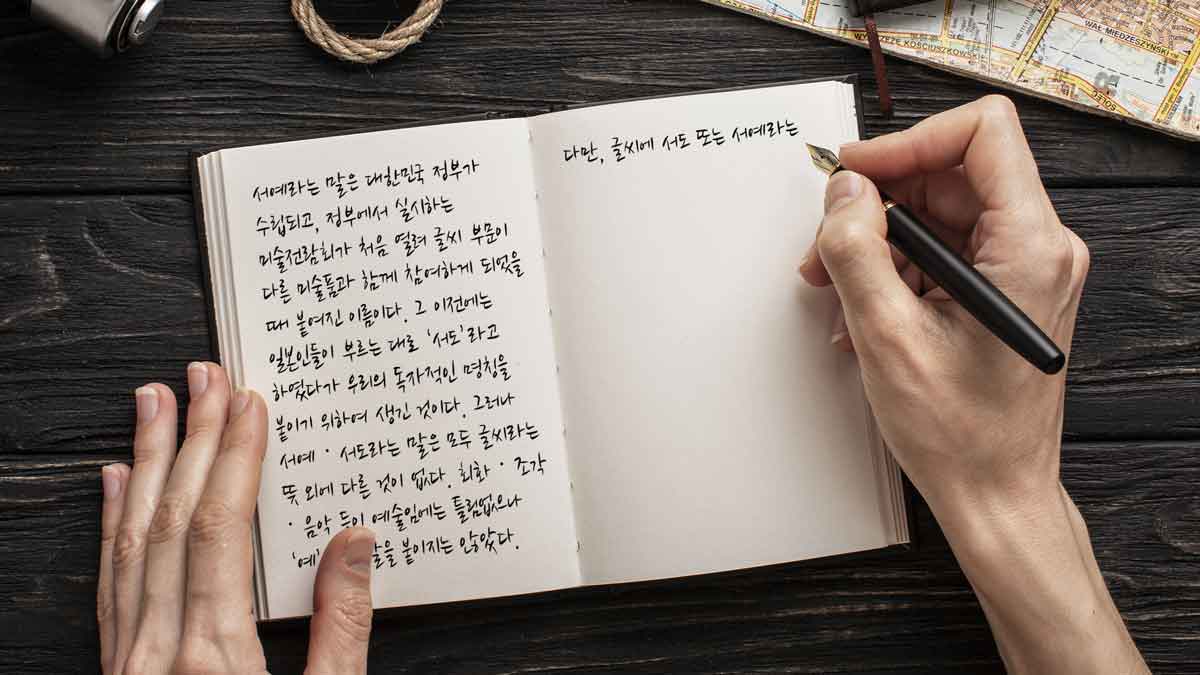 서예라는 말은 대한민국 정부가
수립되고, 정부에서 실시하는
미술전람회가 처음 열려 글씨 부문이
다른 미술품과 함께 참여하게 되었을
때 붙여진 이름이다. 그 이전에는
일본인들이 부르는 대로 '서도'라고
하였다가 우리의 독자적인 명칭을
붙이기 위하여 생긴 것이다. 그러나
서예·서도라는 말은 모두 글씨라는
뜻 외에 다른 것이 없다. 회화·조각
·음악 등이 예술임에는 틀림없으나
'예' 붙이지는 않았다.
다만, 글씨에 서도 또는 서예라는
WYBRZEŻE KOŚCIUSZKOWSKIE
WAŁ MIEDZESZYŃSKI